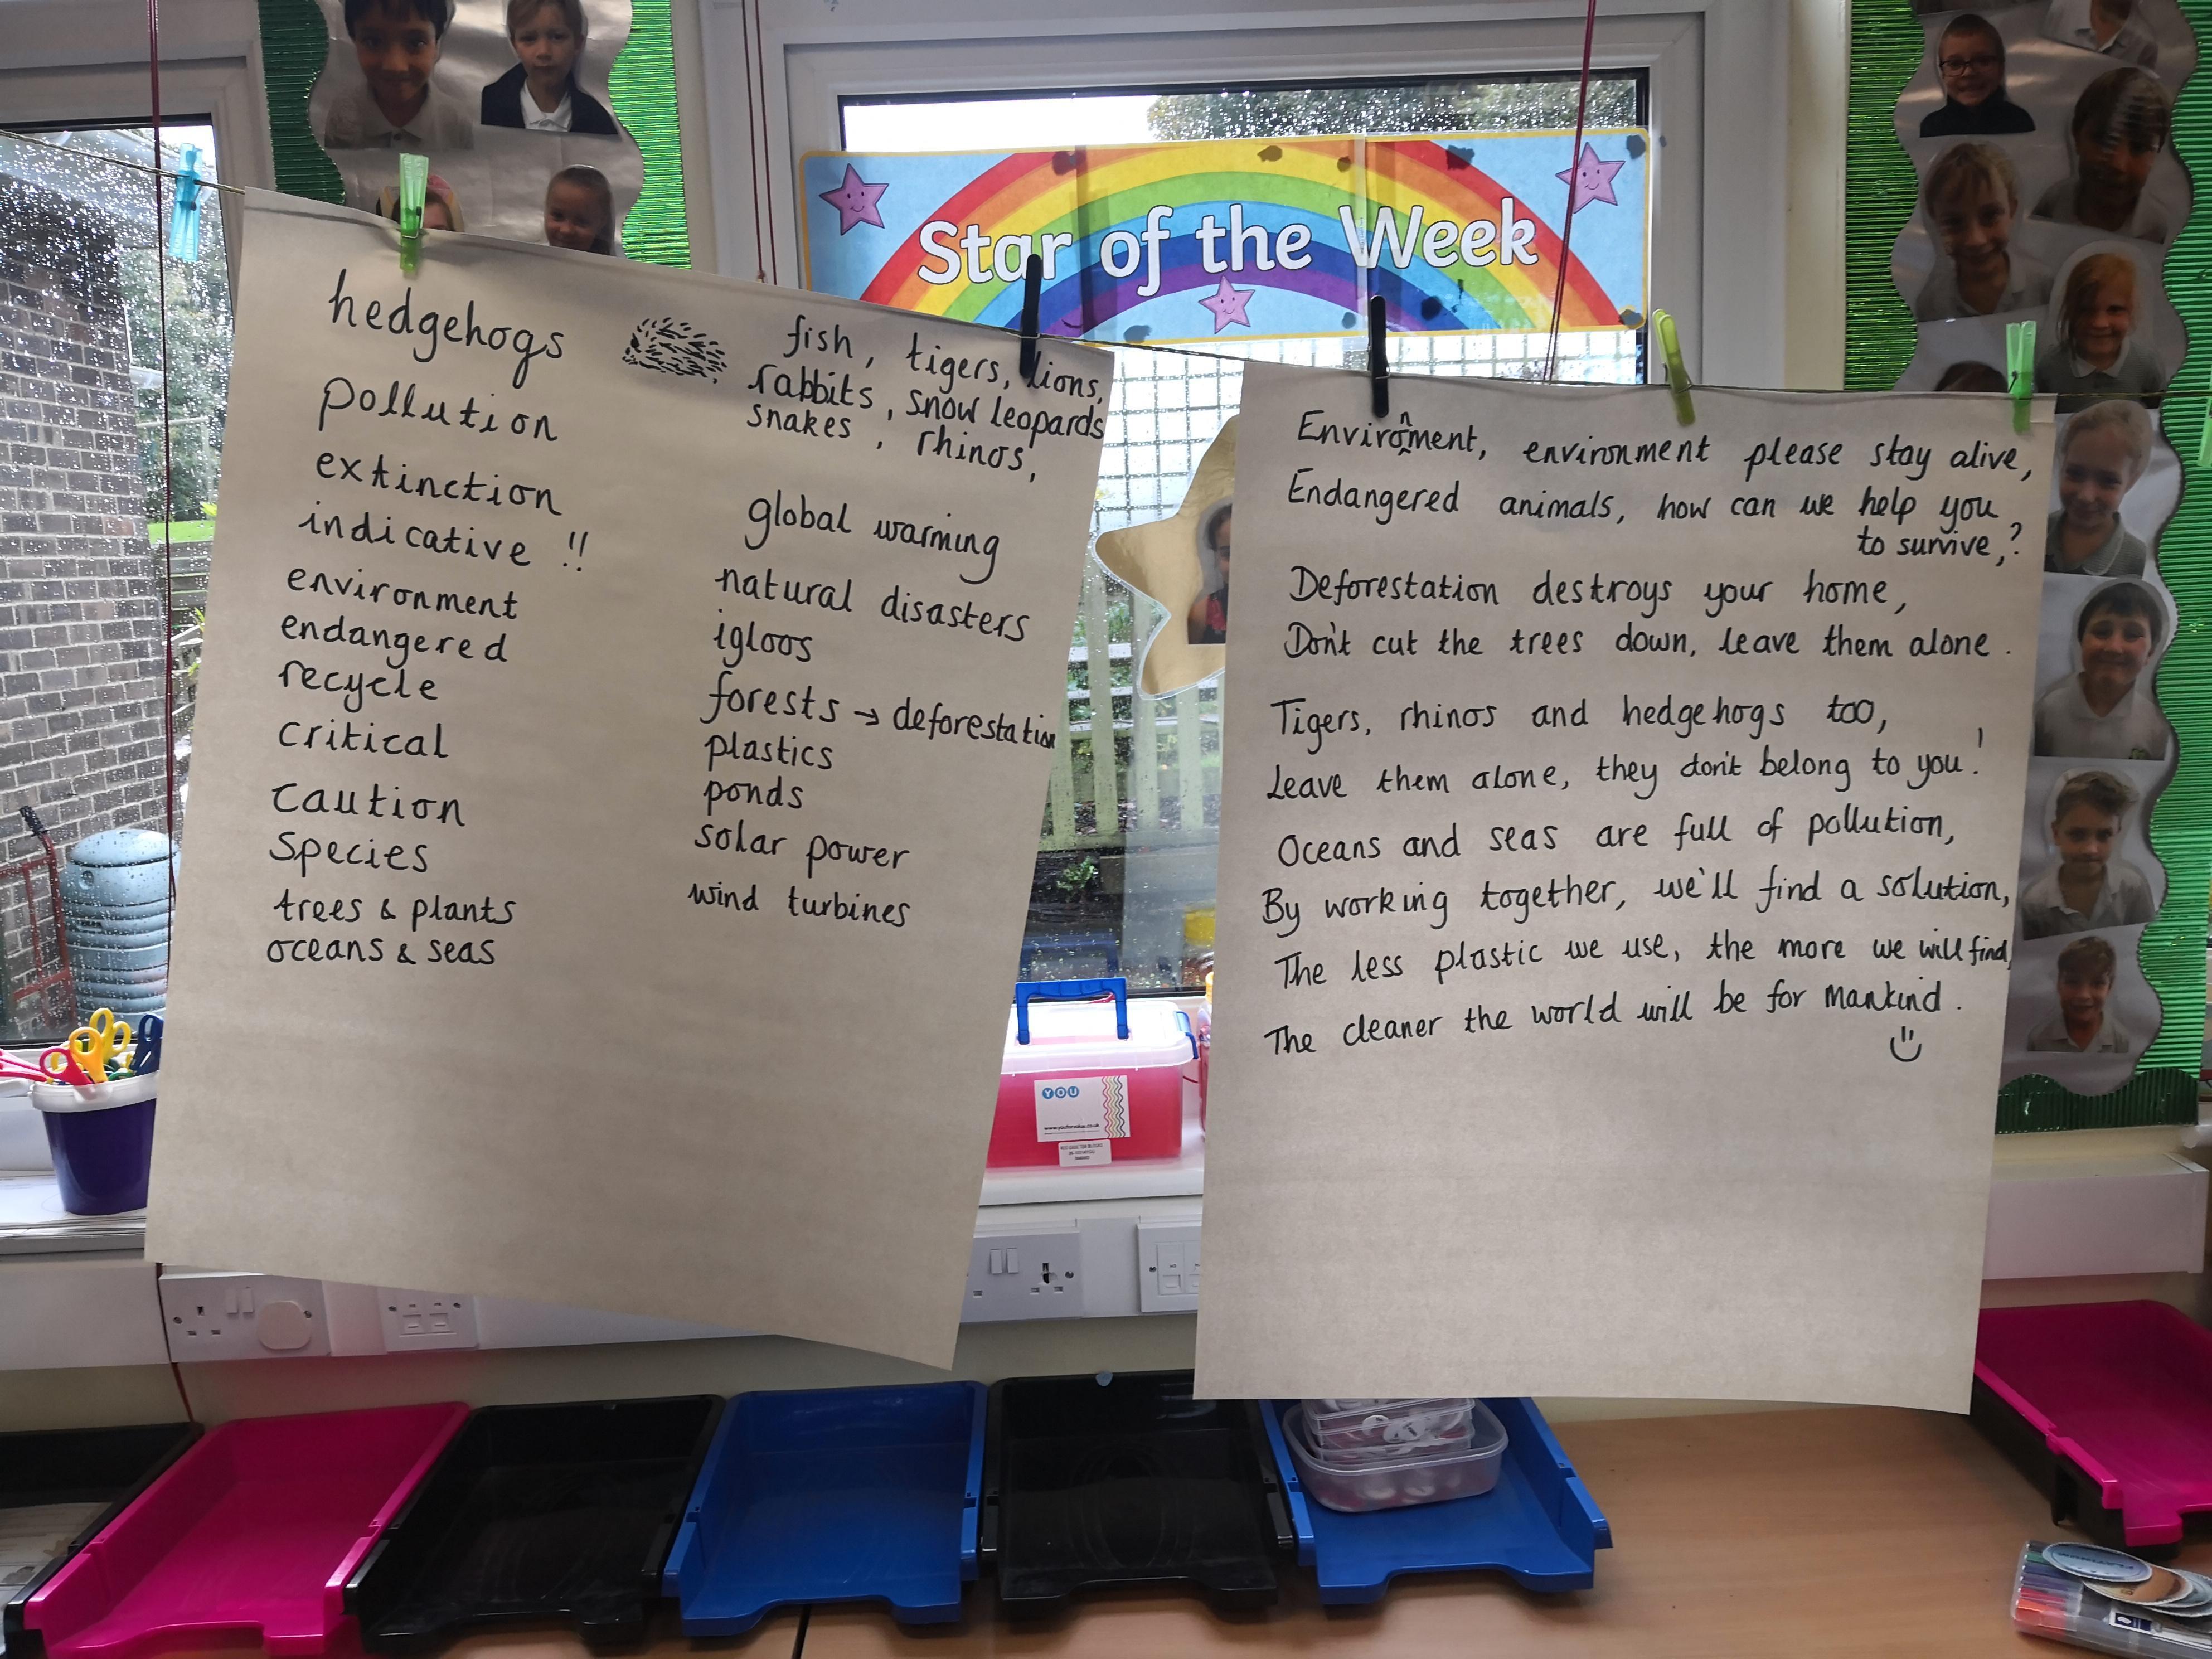 Star of the Week
hedgehogs
pollution
extinction
indicative !!
environment
endangered
recycle
critical
caution
species
trees & plants
oceans & seas
fish, tigers, lions,
rabbits, snow leopards
snakes, rhinos,
global warming
natural disasters
igloos
forests → deforestation
plastics
ponds
solar power
wind turbines
Environment, environment please stay alive,
Endangered animals, how can we help you
to survive,?
Deforestation destroys your home,
Don't cut the trees down, leave them alone.
Tigers, rhinos and hedgehogs too,
Leave them alone, they don't belong to you!
Oceans and seas are full of pollution,
By working together, we'll find a solution,
The less plastic we use, the more we will find,
The cleaner the world will be for mankind.
YOU